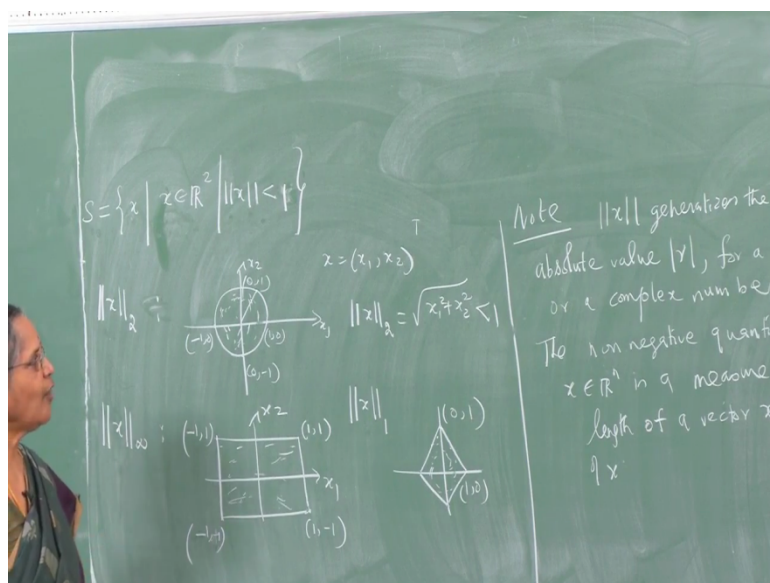 S = { x | x ∈ ℝ² | ||x|| < 1 }
x = (x₁, x₂)
||x||₂ :
x₂
(0,1)
x₁
(-1,0)
(1,0)
(0,-1)
||x||₂ = √(x₁² + x₂²) < 1
||x||∞ :
x₂
(-1,1)
(1,1)
x₁
(-1,-1)
(1,-1)
||x||₁
(0,1)
(1,0)
Note ||x|| generalizes the
absolute value |r|, for a
or a complex numbe
The non negative quanti
x ∈ ℝⁿ is a measure
length of a vector x
of x